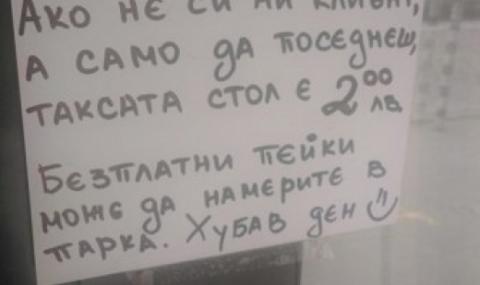 Ако не си ни клиент,
а само да поседнеш,
таксата стол е 2⁰⁰ лв
Безплатни пейки
може да намерите в
парка. Хубав ден